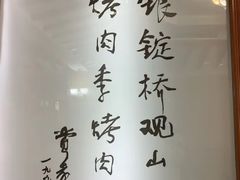 银锭桥观山
烤肉季烤肉
一九